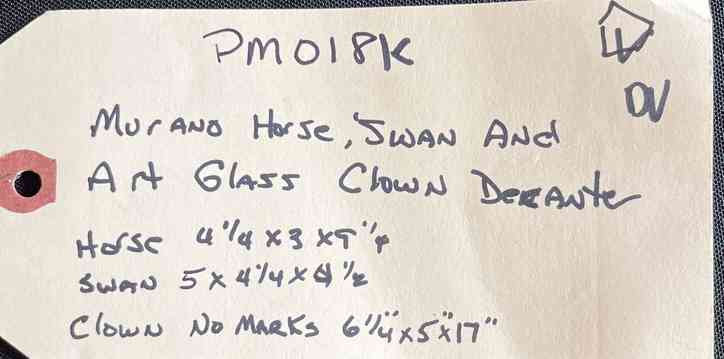 PM018K
DV
Murano Horse, Swan And
Art Glass Clown Decanter
Horse 4 1/4 x 3 x 9 "4
Swan 5 x 4 1/4 x 4 1/2
Clown No Marks 6 1/4" x 5" x 17"